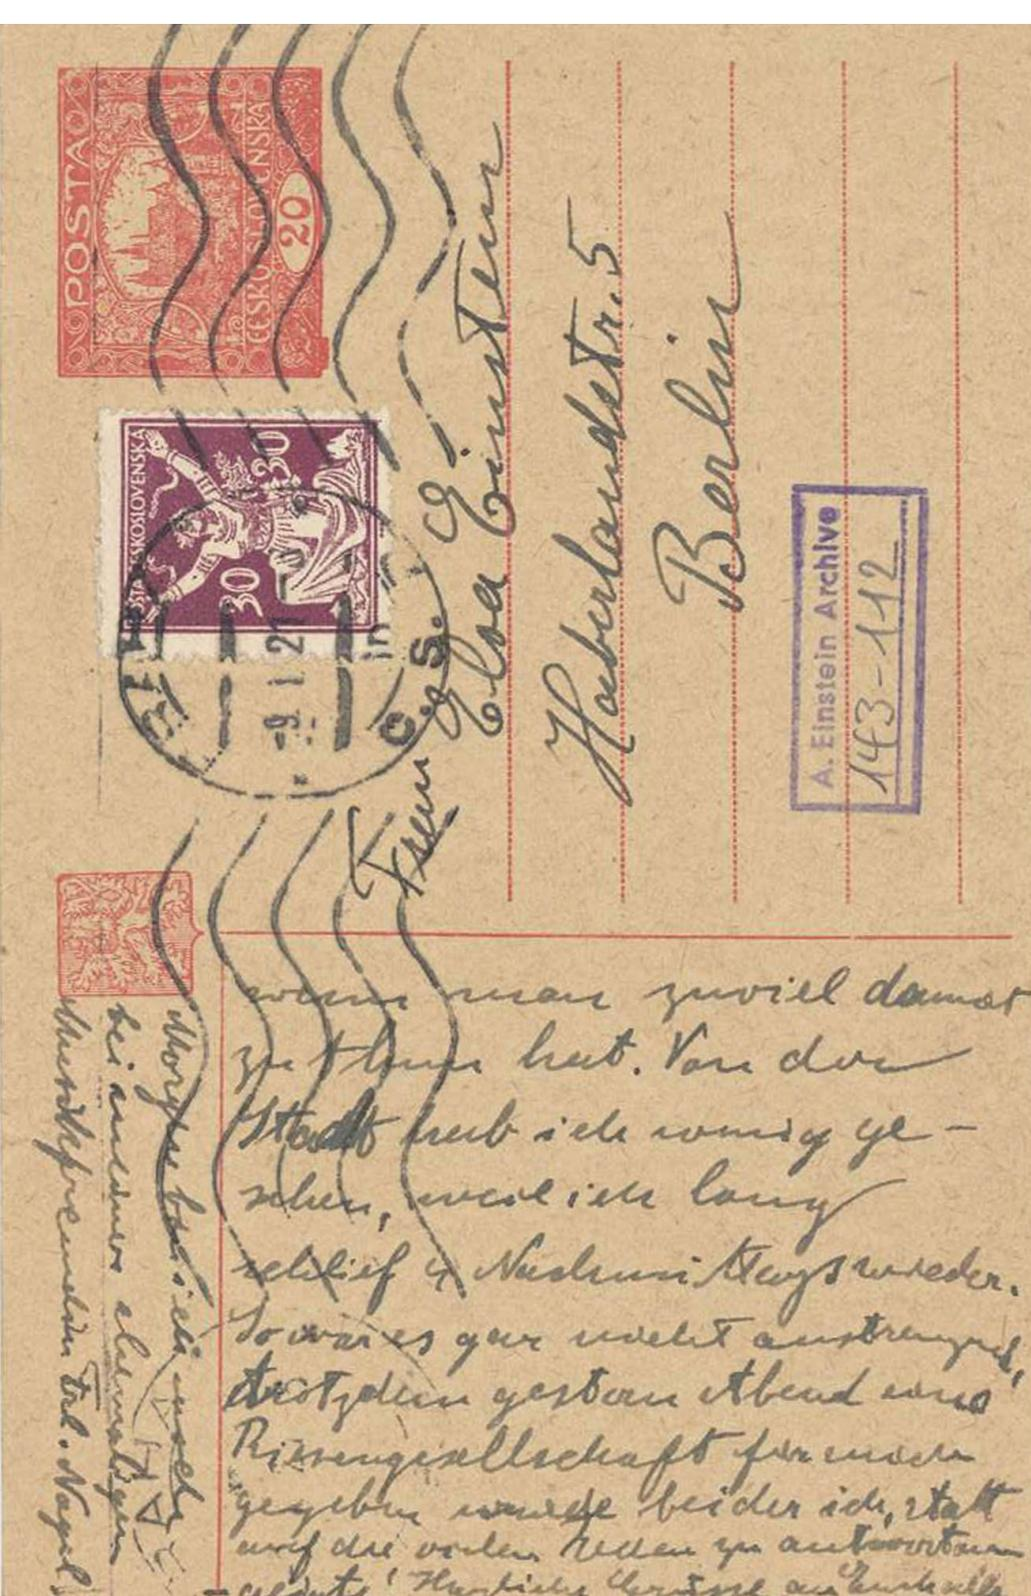 POSTA
ČESKOSLOVENSKÁ
20
POSTA ČESKOSLOVENSKÁ
30 30
-9 I 21
Č. S.
Frau Elsa Einstein
Haberlandstr. 5
Berlin
A. Einstein Archive
143-112
wenn man zuviel damit
zu thun hat. Von der
Stadt hab ich wenig ge-
sehen, weil ich lang
schlief u Nachmittags wieder.
So war es gar nicht anstrengend,
trotzdem gestern Abend eine
Riesengesellschaft für mich
gegeben wurde bei der ich, statt
auf die vielen Reden zu antworten
geigte! Herzliche Grüsse an
Morgen bin ich noch
bei meiner ehemaligen
Musikfreundin Frl. Nagel